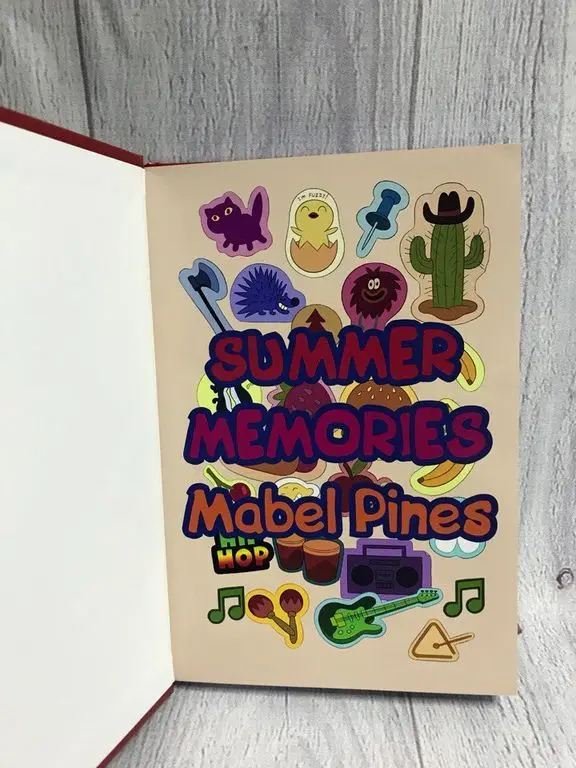 I'm FUZZY!
SUMMER
MEMORIES
Mabel Pines
HIP
HOP